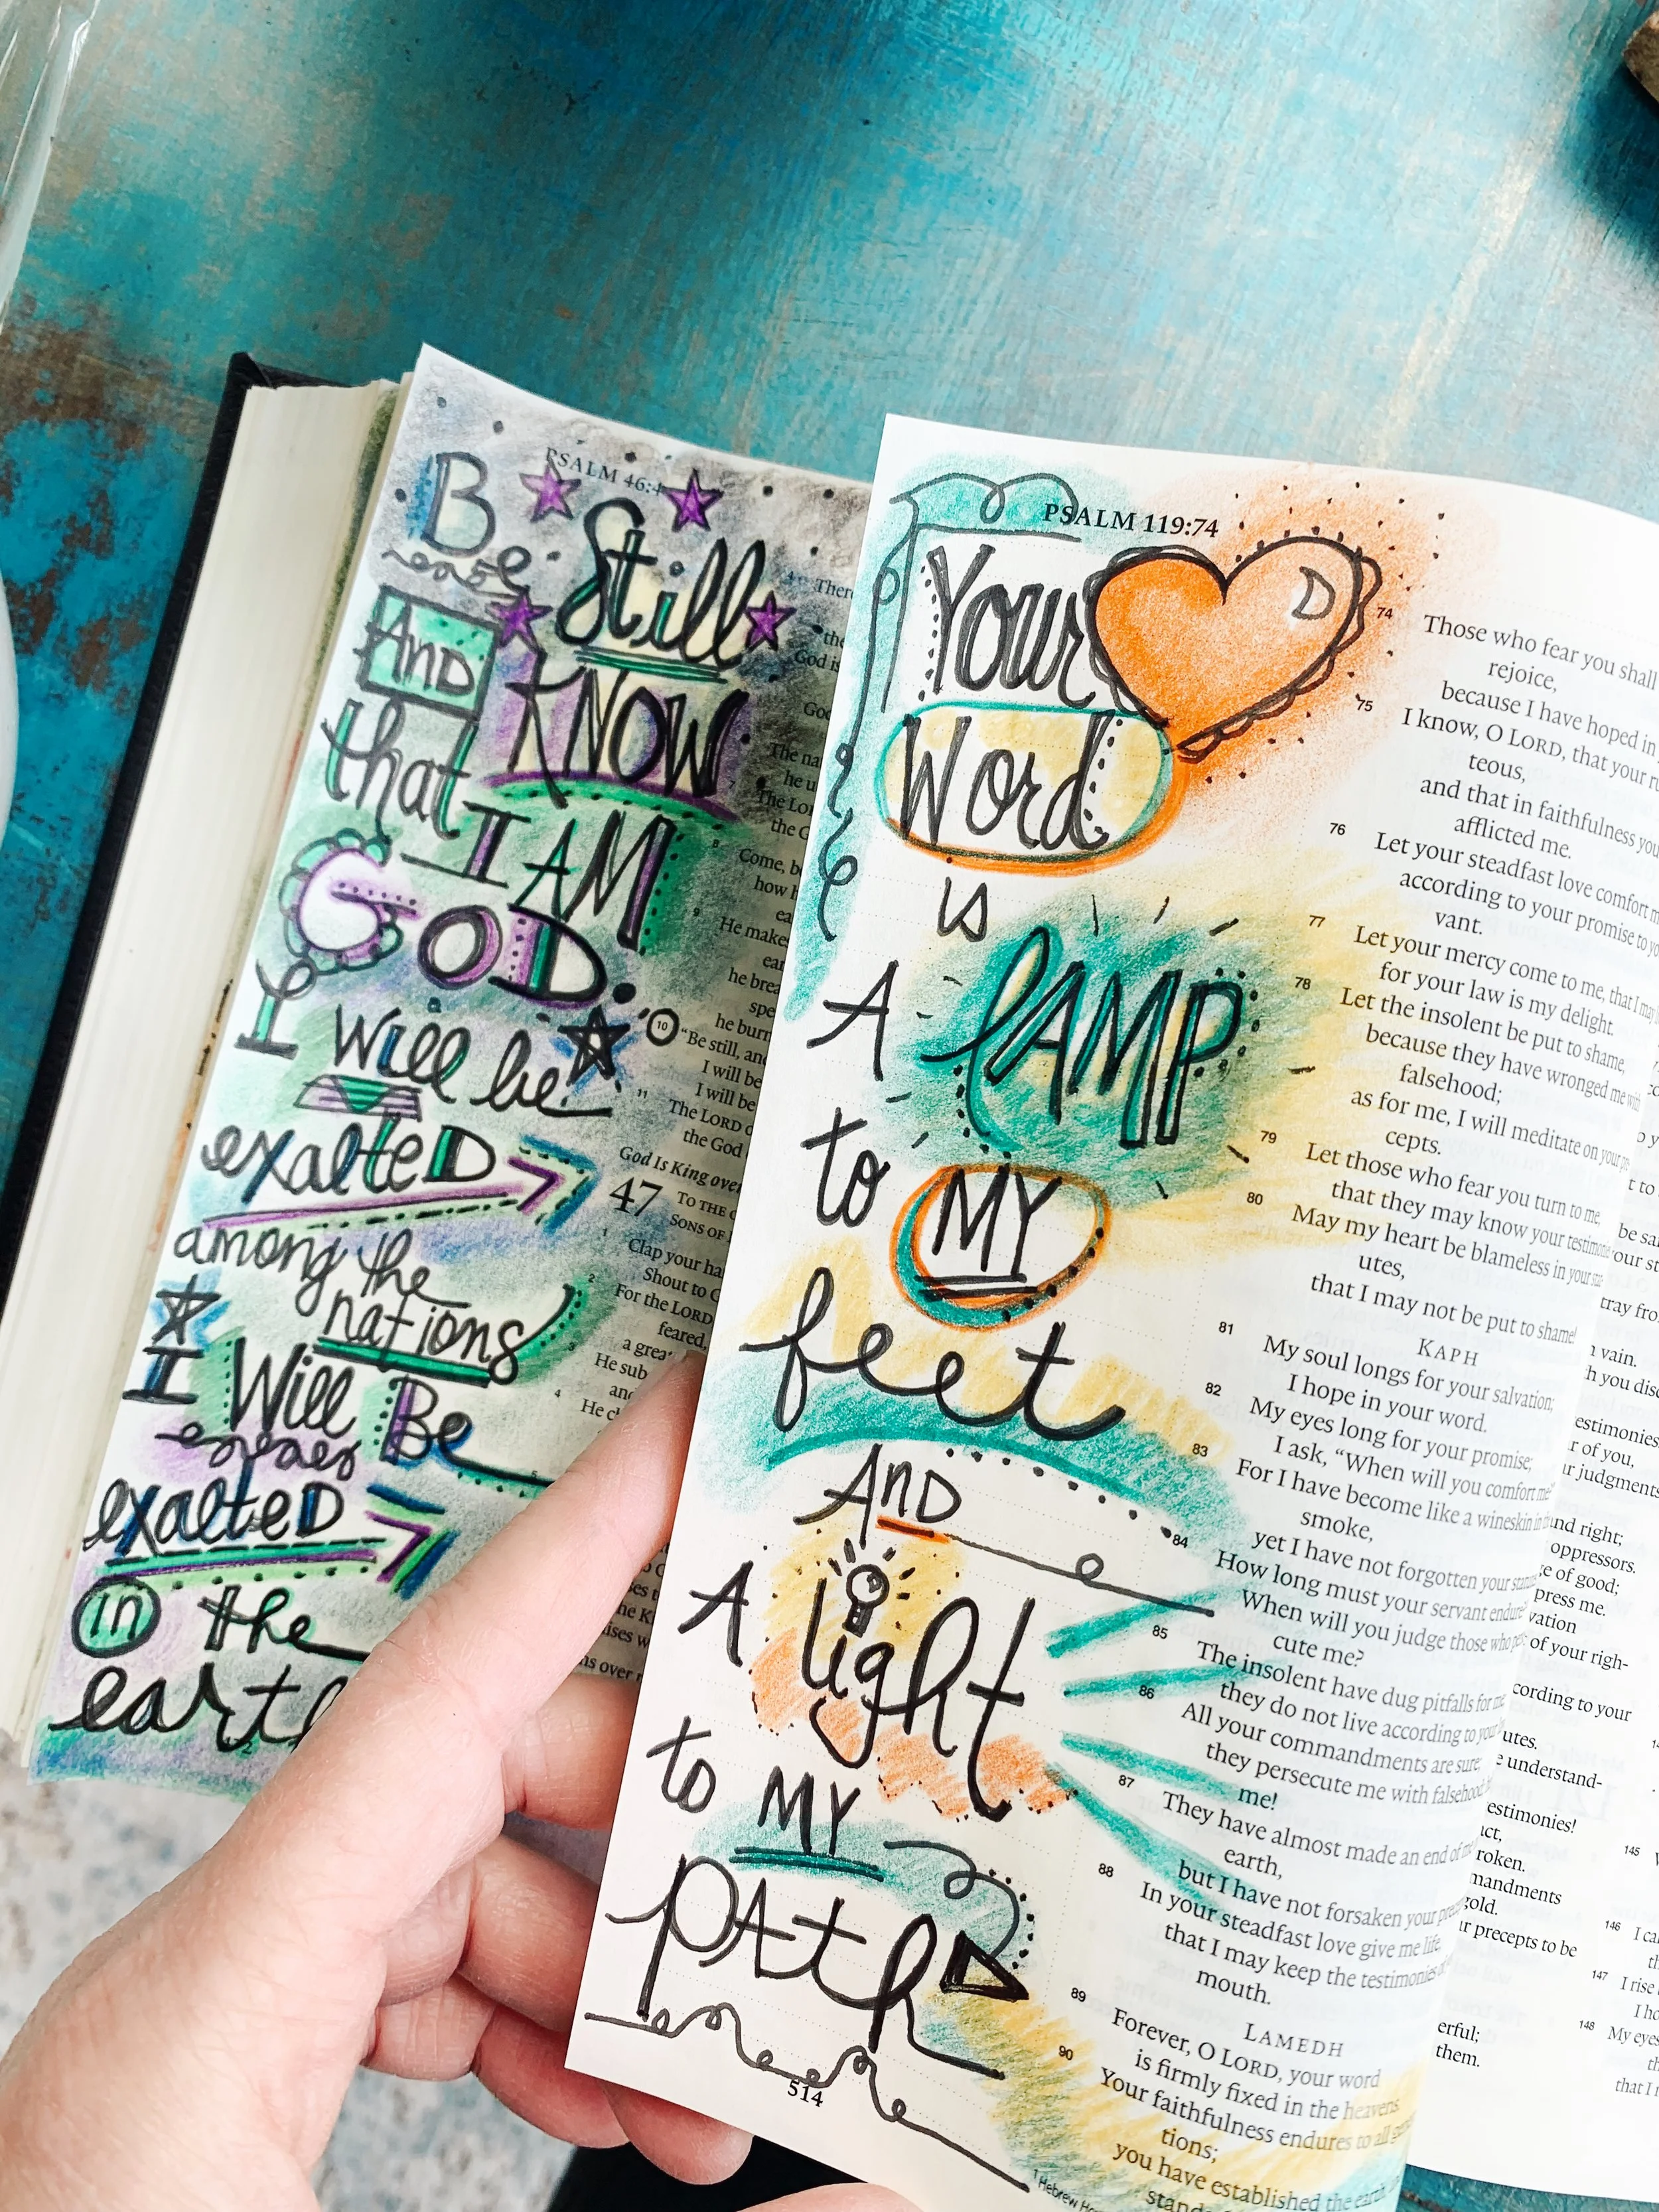 PSALM 46:4
Be Still
And KNOW
that I AM
GOD.
I will be
exalteD
among the
nations
I Will Be
exalteD
in the
earth
There
the
God is
The na
he u
The Lor
the G
8 Come, b
how h
9 He make
ear
he brea
spe
he burn
10 "Be still, and
I will be
I will be
11 The LORD
the God
God Is King over
47 TO THE
SONS OF
1 Clap your ha
Shout to G
2 For the LORD
feared,
a great
3 He sub
and
4 He ch
PSALM 119:74
Your
Word
is
A LAMP
to MY
feet
AnD
A light
to MY
PAth
514
74 Those who fear you shall
rejoice,
because I have hoped in
75 I know, O LORD, that your ru
teous,
and that in faithfulness you
afflicted me.
76 Let your steadfast love comfort m
according to your promise to yo
vant.
77 Let your mercy come to me, that I may
for your law is my delight.
78 Let the insolent be put to shame,
because they have wronged me with
falsehood;
as for me, I will meditate on your
cepts.
79 Let those who fear you turn to me,
that they may know your testimo
80 May my heart be blameless in your sta
utes,
that I may not be put to shame!
KAPH
81 My soul longs for your salvation;
I hope in your word.
82 My eyes long for your promise;
I ask, "When will you comfort me?"
83 For I have become like a wineskin in
smoke,
yet I have not forgotten your
84 How long must your servant endure?
When will you judge those who
cute me?
85 The insolent have dug pitfalls for me
they do not live according to your
86 All your commandments are sure;
they persecute me with falsehood;
me!
87 They have almost made an end of
earth,
but I have not forsaken your
88 In your steadfast love give me life,
that I may keep the testimonies
mouth.
LAMEDH
89 Forever, O LORD, your word
is firmly fixed in the heavens.
90 Your faithfulness endures to all
tions;
you have established the earth,
1 Hebrew
vain.
testimonies.
of you,
judgments
and right;
oppressors.
of good;
press me.
of your righ-
cording to your
utes.
understand-
testimonies!
act,
broken.
mandments
gold.
precepts to be
erful;
them.
145
146
147 I rise
148 My eyes
that I